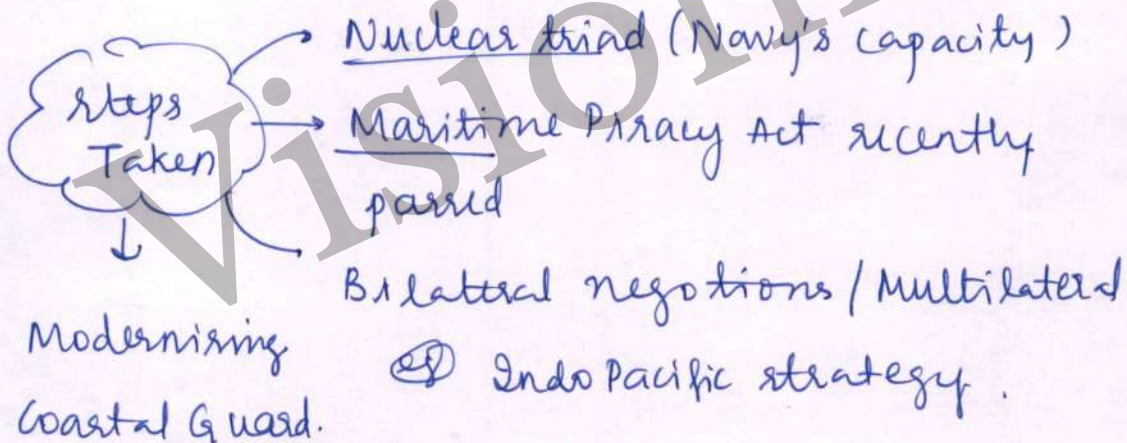 Nuclear triad (Navy's capacity)
Steps
Taken
Maritime Piracy Act recently
passed
Bilateral negotions / Multilateral
eg Indo Pacific strategy.
Modernising
Coastal Guard.
Vision